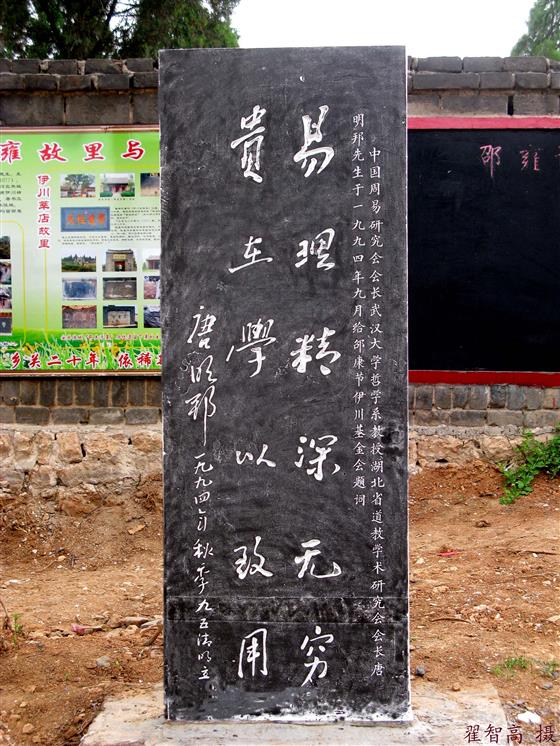 中国周易研究会会长武汉大学哲学系教授湖北省道教学术研究会会长唐
明邦先生于一九九四年九月给邵康节伊川基金会题词
易理精深无穷
貴在學以致用
唐明邦 一九九四年秋季九五清明立
雍故里与
伊川莘店故里
乡关二十年 依稀
邵雍
翟智高 摄